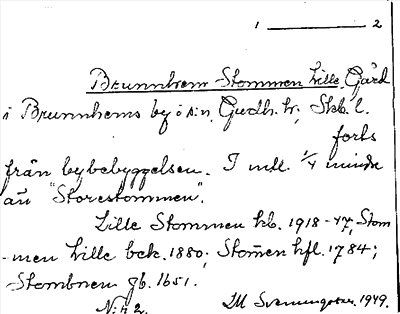 1 ——— 2
Brunnhem Stommen Lille, Gård
i Brunnhems by o. s:n, Gudh. hr, Skb. l.
forts
från bybebyggelsen. I mtl. 1/4 mindre
än "Storestommen".
Lille Stommen kb. 1918-47, Stom
-men Lille bck. 1880; Stom̄en hfl. 1784;
Stombnen gb. 1651.
N:r 2. IM 1949.